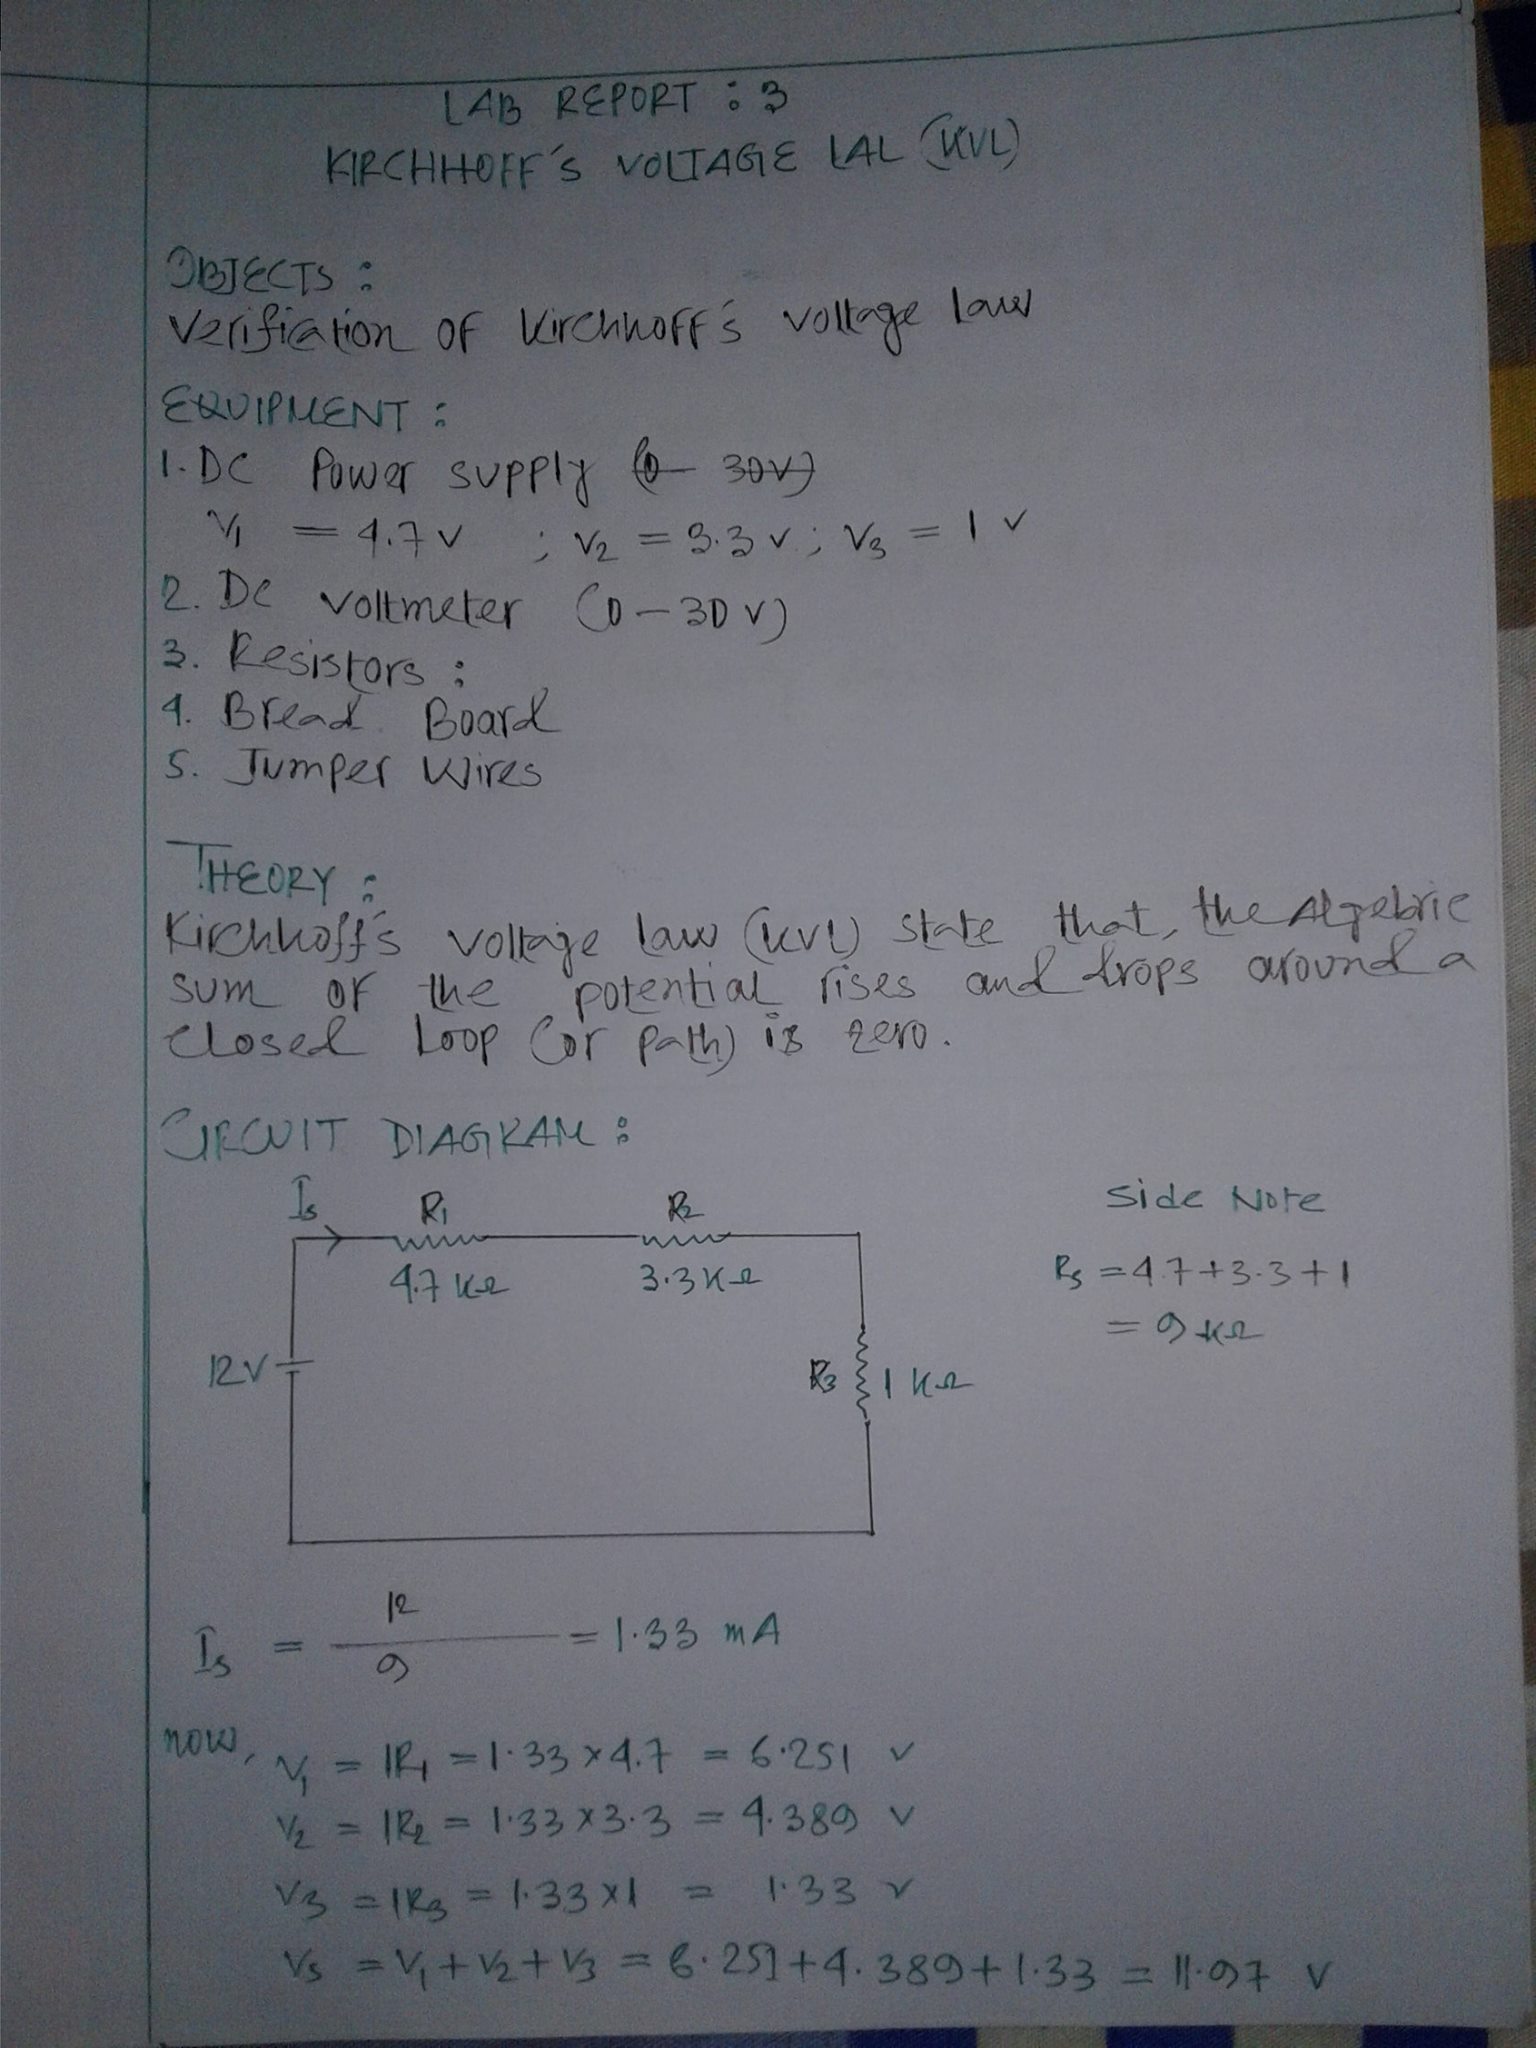 LAB REPORT : 3
KIRCHHOFF'S VOLTAGE LAL (KVL)
OBJECTS :
Verifiation OF Kirchhoff's voltage law
EQUIPMENT :
1. DC Power supply (0 - 30V)
V1 = 4.7 V ; V2 = 3.3 V ; V3 = 1 V
2. DC voltmeter (0 - 30 V)
3. Resistors :
4. Bread Board
5. Jumper Wires
THEORY :
Kirchhoff's voltage law (KVL) state that, the Algebric
sum of the potential rises and drops around a
closed Loop (or path) is zero.
CIRCUIT DIAGRAM :
Is R1 R2
4.7 KΩ 3.3 KΩ
12V
R3 1 KΩ
Side Note
Rs = 4.7 + 3.3 + 1
= 9 KΩ
Is = 12/9 = 1.33 mA
now, V1 = IR1 = 1.33 x 4.7 = 6.251 V
V2 = IR2 = 1.33 x 3.3 = 4.389 V
V3 = IR3 = 1.33 x 1 = 1.33 V
Vs = V1 + V2 + V3 = 6.251 + 4.389 + 1.33 = 11.97 V